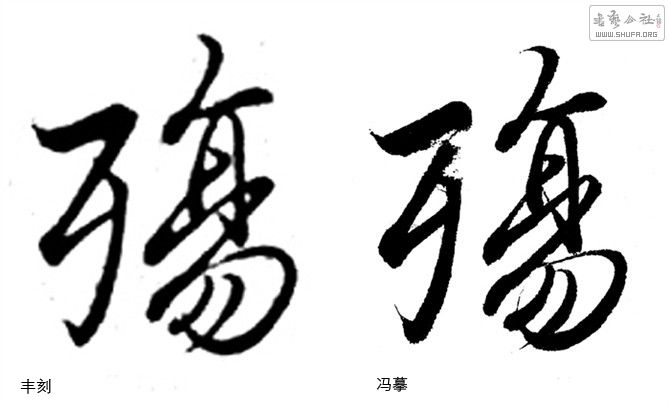 書藝公社
WWW.SHUFA.ORG
殤 殤
丰刻 冯摹